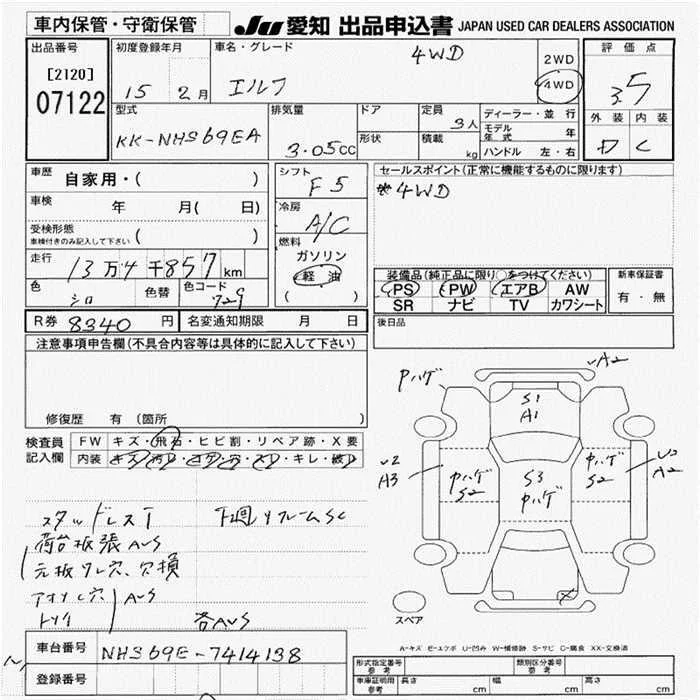 車内保管・守衛保管 JU 愛知 出品申込書 JAPAN USED CAR DEALERS ASSOCIATION
出品番号 初度登録年月 車名・グレード 評価点
[2120] 4WD 2WD
07122 15 2月 エルフ 4WD 3.5
型式 排気量 ドア 定員 3人 ディーラー・並行 外装 内装
KK-NHS69EA 3.05cc 形状 積載 kg モデル年式 年 D C
ハンドル 左・右
車歴 自家用・( ) シフト F5 セールスポイント(正常に機能するものに限ります)
車検 年 月( 日) 冷房 A/C 4WD
受検形態 車検付きのみ記入して下さい ( ) 燃料
走行 13万4千857km ガソリン
軽油
( )
色 シロ 色替 色コード 729
装備品(純正品に限り○をつけてください) 新車保証書
PS PW エアB AW 有・無
SR ナビ TV カワシート
R券 8340円 名変通知期限 月 日 後日品
注意事項申告欄(不具合内容等は具体的に記入して下さい)
修復歴 有 (箇所 )
検査員記入欄 FW キズ・飛石・ヒビ割・リペア跡・X要
内装 キズ・汚れ・コゲ・穴・スレ・キレ・破れ
Pハゲ A2
S1
A1
A3 Pハゲ S2 S3 Pハゲ Pハゲ S2 A2
スタッドレスT 下廻りフレームSC
荷台板張AUS
元板ワレ穴、欠損
アオリ穴 AUS
各AUS
スペア
A-キズ E-エクボ U-凹み W-補修跡 S-サビ C-腐食 XX-交換済
車台番号 NHS69E-7414138
登録番号
形式指定番号 参考 類別区分番号 参考
車庫証明用 参考 長さ cm 幅 cm 高さ cm